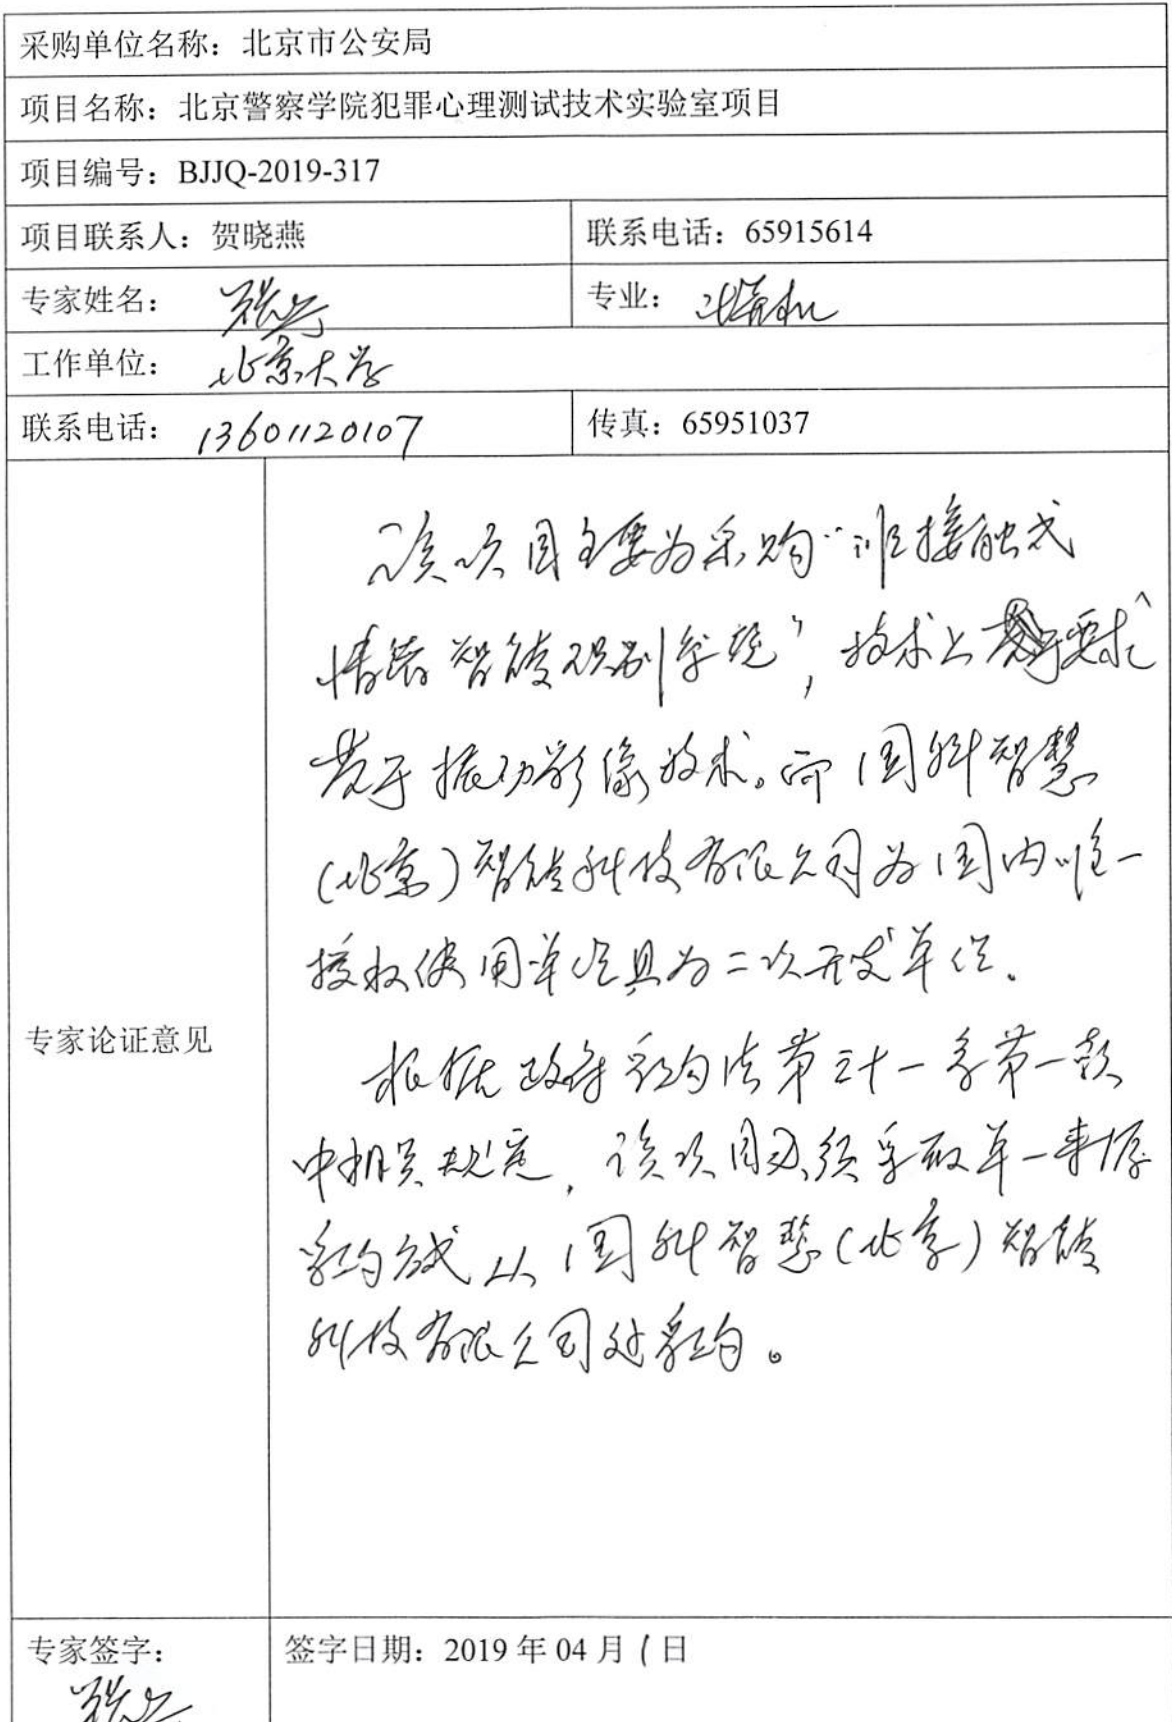 采购单位名称：北京市公安局
项目名称：北京警察学院犯罪心理测试技术实验室项目
项目编号：BJJQ-2019-317
项目联系人：贺晓燕
联系电话：65915614
专家姓名：
专业：计算机
工作单位：北京大学
联系电话：13601120107
传真：65951037
专家论证意见
该项目主要为采购“非接触式
情绪智能识别系统”，技术上要求
基于振动影像技术。而国科智慧
（北京）智能科技有限公司为国内唯一
授权使用单位且为二次开发单位。
根据政府采购法第三十一条第一款
中相关规定，该项目必须采取单一来源
采购方式从国科智慧（北京）智能
科技有限公司处采购。
专家签字：
签字日期：2019年04月1日